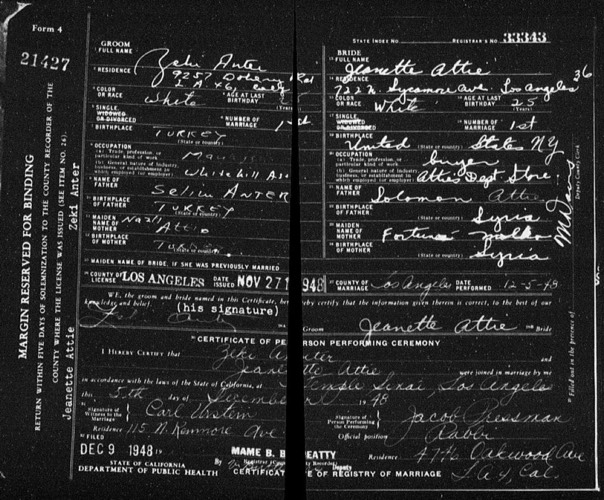 Form 4
21427
STATE INDEX NO.
REGISTRAR'S NO. 33343
GROOM
FULL NAME Zeki Anter
RESIDENCE 9257 Doheny Rd
L A 46, Calif
COLOR OR RACE White
AGE AT LAST BIRTHDAY
SINGLE, WIDOWED OR DIVORCED
NUMBER OF MARRIAGE 1st
BIRTHPLACE TURKEY
(State or country)
OCCUPATION
(a) Trade, profession or particular kind of work
(b) General nature of Industry, business, or establishment in which employed (or employer) Whitehill
NAME OF FATHER Selim ANTER
BIRTHPLACE OF FATHER TURKEY
(State or country)
MAIDEN NAME OF MOTHER Nazli Attie
BIRTHPLACE OF MOTHER
MAIDEN NAME OF BRIDE, IF SHE WAS PREVIOUSLY MARRIED
BRIDE
FULL NAME Jeanette Attie
RESIDENCE 722 N. Sycamore Ave Los Angeles 36
COLOR OR RACE White
AGE AT LAST BIRTHDAY 25
(Years)
SINGLE, WIDOWED OR DIVORCED
NUMBER OF MARRIAGE 1st
BIRTHPLACE United States NY
(State or country)
OCCUPATION
(a) Trade, profession or particular kind of work buyer
(b) General nature of Industry, business, or establishment in which employed (or employer) Attie Dept Store
NAME OF FATHER Solomon Attie
BIRTHPLACE OF FATHER Syria
(State or country)
MAIDEN NAME OF MOTHER Fortunee
BIRTHPLACE OF MOTHER Syria
(State or country)
COUNTY OF LICENSE LOS ANGELES DATE ISSUED NOV 27 1948
COUNTY OF MARRIAGE Los Angeles DATE PERFORMED 12-5-48
WE, the groom and bride named in this Certificate, hereby certify that the information given therein is correct, to the best of our
knowledge and belief.
(his signature)
Groom
Jeanette Attie Bride
CERTIFICATE OF PERSON PERFORMING CEREMONY
I HEREBY CERTIFY that Zeki Anter and
Jeanette Attie were joined in marriage by me
in accordance with the laws of the State of California, at Temple Sinai Los Angeles
this 5th day of December 1948
Signature of Witness to the Marriage Carl
Residence 115 N. Kenmore Ave
Signature of Person Performing the Ceremony Jacob Pressman
Official position Rabbi
Residence 4746 Oakwood Ave
L.A. 4, Cal.
FILED
DEC 9 1948
MAME B. BEATTY
STATE OF CALIFORNIA
DEPARTMENT OF PUBLIC HEALTH
CERTIFICATE OF REGISTRY OF MARRIAGE
MARGIN RESERVED FOR BINDING
RETURN WITHIN FIVE DAYS OF SOLEMNIZATION TO THE COUNTY RECORDER OF THE
COUNTY WHERE THE LICENSE WAS ISSUED (SEE ITEM NO. 26).
Jeanette Attie
Zeki Anter
Deputy County Clerk
Filled out in the presence of